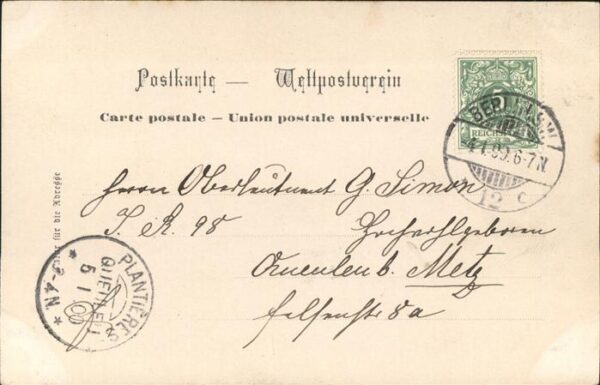 Postkarte — Weltpostverein
Carte postale – Union postale universelle
5
REICHSPOST
BERLIN S.W.
4.1.99. 6-7N.
12 c
Herrn Oberleutnant G. Simon
I. R. 98 Hochwohlgeboren
Queuleu b. Metz
Felsenstr 8a
für die Adresse
PLANTIÈRES
QUEULEU
5 1
3-4 N